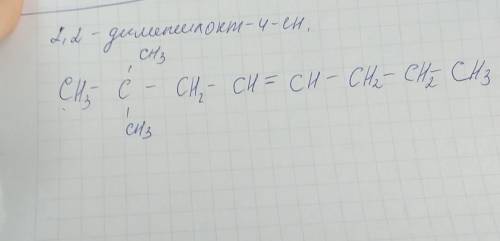 2,2 - диметилокт-4-ен.
CH₃
CH₃ - C - CH₂ - CH = CH - CH₂ - CH₂ - CH₃
CH₃